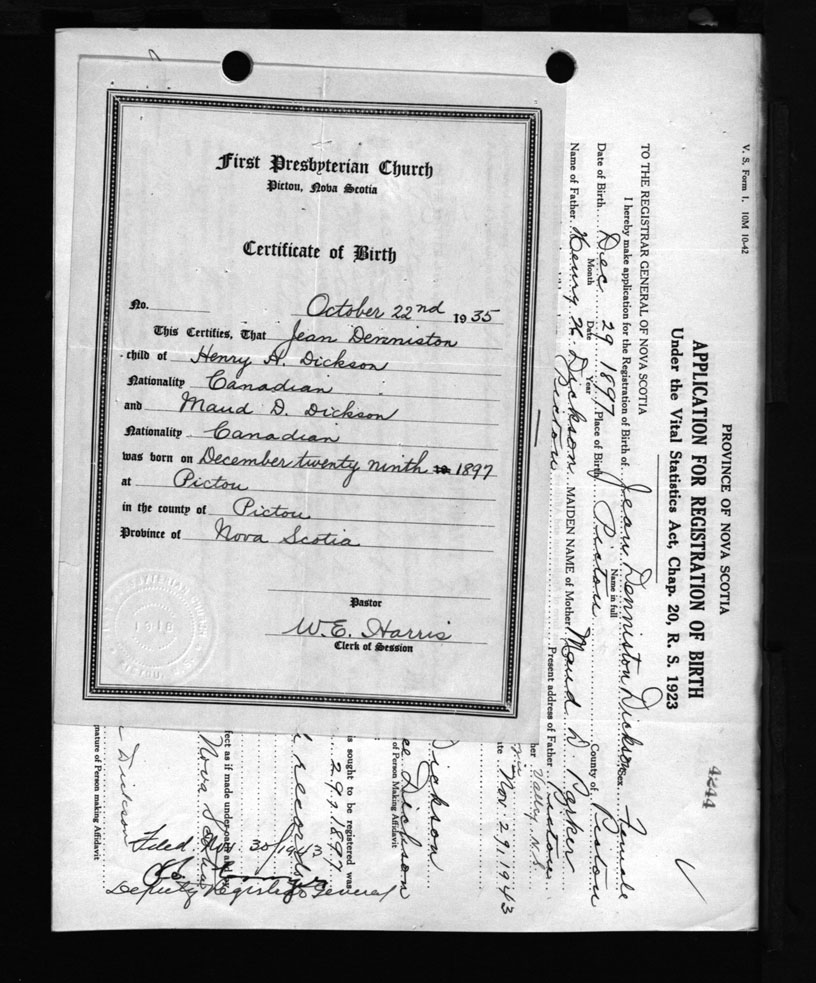 First Presbyterian Church
Pictou, Nova Scotia
Certificate of Birth
No. October 22nd 1935
This Certifies, That Jean Denniston
child of Henry H. Dickson
Nationality Canadian
and Maud D. Dickson
Nationality Canadian
was born on December twenty ninth 19 1897
at Pictou
in the county of Pictou
Province of Nova Scotia
Pastor
W.E. Harris
Clerk of Session
1918
V. S. Form 1. 10M 10-42
PROVINCE OF NOVA SCOTIA
APPLICATION FOR REGISTRATION OF BIRTH
Under the Vital Statistics Act, Chap. 20, R. S. 1923
4244
TO THE REGISTRAR GENERAL OF NOVA SCOTIA
I hereby make application for the Registration of Birth of Jean Denniston Dickson Sex Female
Name in full
Date of Birth Dec 29 1897 Place of Birth Pictou County of Pictou
Month Date Year
Name of Father Henry H. Dickson MAIDEN NAME of Mother Maud D. Parker
Pictou Present address of Father Pictou
her Valley, N.S.
ate Nov. 29, 1943
Dickson
ce Dickson
of Person Making Affidavit
is sought to be registered was
29, 1897
records
fect as if made under oath
Nova Scotia
Dickson
nature of Person making Affidavit
Filed Nov. 30/1943
Deputy Registrar General